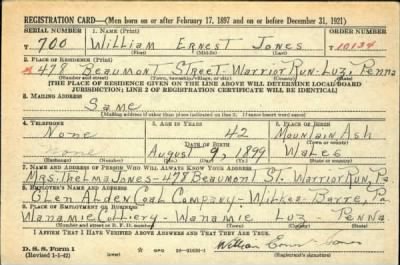 REGISTRATION CARD—(Men born on or after February 17, 1897 and on or before December 31, 1921)
SERIAL NUMBER 1. NAME (Print) ORDER NUMBER
T 700 William Ernest Jones 10134
2. PLACE OF RESIDENCE (Print)
478 Beaumont Street-Warrior Run-Luz, Penna
(Number and street) (Town, township, village, or city) (County) (State)
[THE PLACE OF RESIDENCE GIVEN ON THE LINE ABOVE WILL DETERMINE LOCAL BOARD
JURISDICTION; LINE 2 OF REGISTRATION CERTIFICATE WILL BE IDENTICAL]
3. MAILING ADDRESS
Same
(Mailing address if other than place indicated on line 2. If same insert word same)
4. TELEPHONE 5. AGE IN YEARS 6. PLACE OF BIRTH
None 42 Mountain Ash
DATE OF BIRTH (Town or county)
None August 9, 1899 Wales
7. NAME AND ADDRESS OF PERSON WHO WILL ALWAYS KNOW YOUR ADDRESS
Mrs. Thelma Jones-478 Beaumont St. Warrior Run, Pa
8. EMPLOYER'S NAME AND ADDRESS
Glen Alden Coal Company-Wilkes-Barre, Pa
9. PLACE OF EMPLOYMENT OR BUSINESS
Wanamie Colliery-Wanamie Luz-Penna
(Number and street or R. F. D. number) (Town) (County) (State)
I AFFIRM THAT I HAVE VERIFIED ABOVE ANSWERS AND THAT THEY ARE TRUE.
D. S. S. Form 1
(Revised 1-1-42)
William Ernest Jones